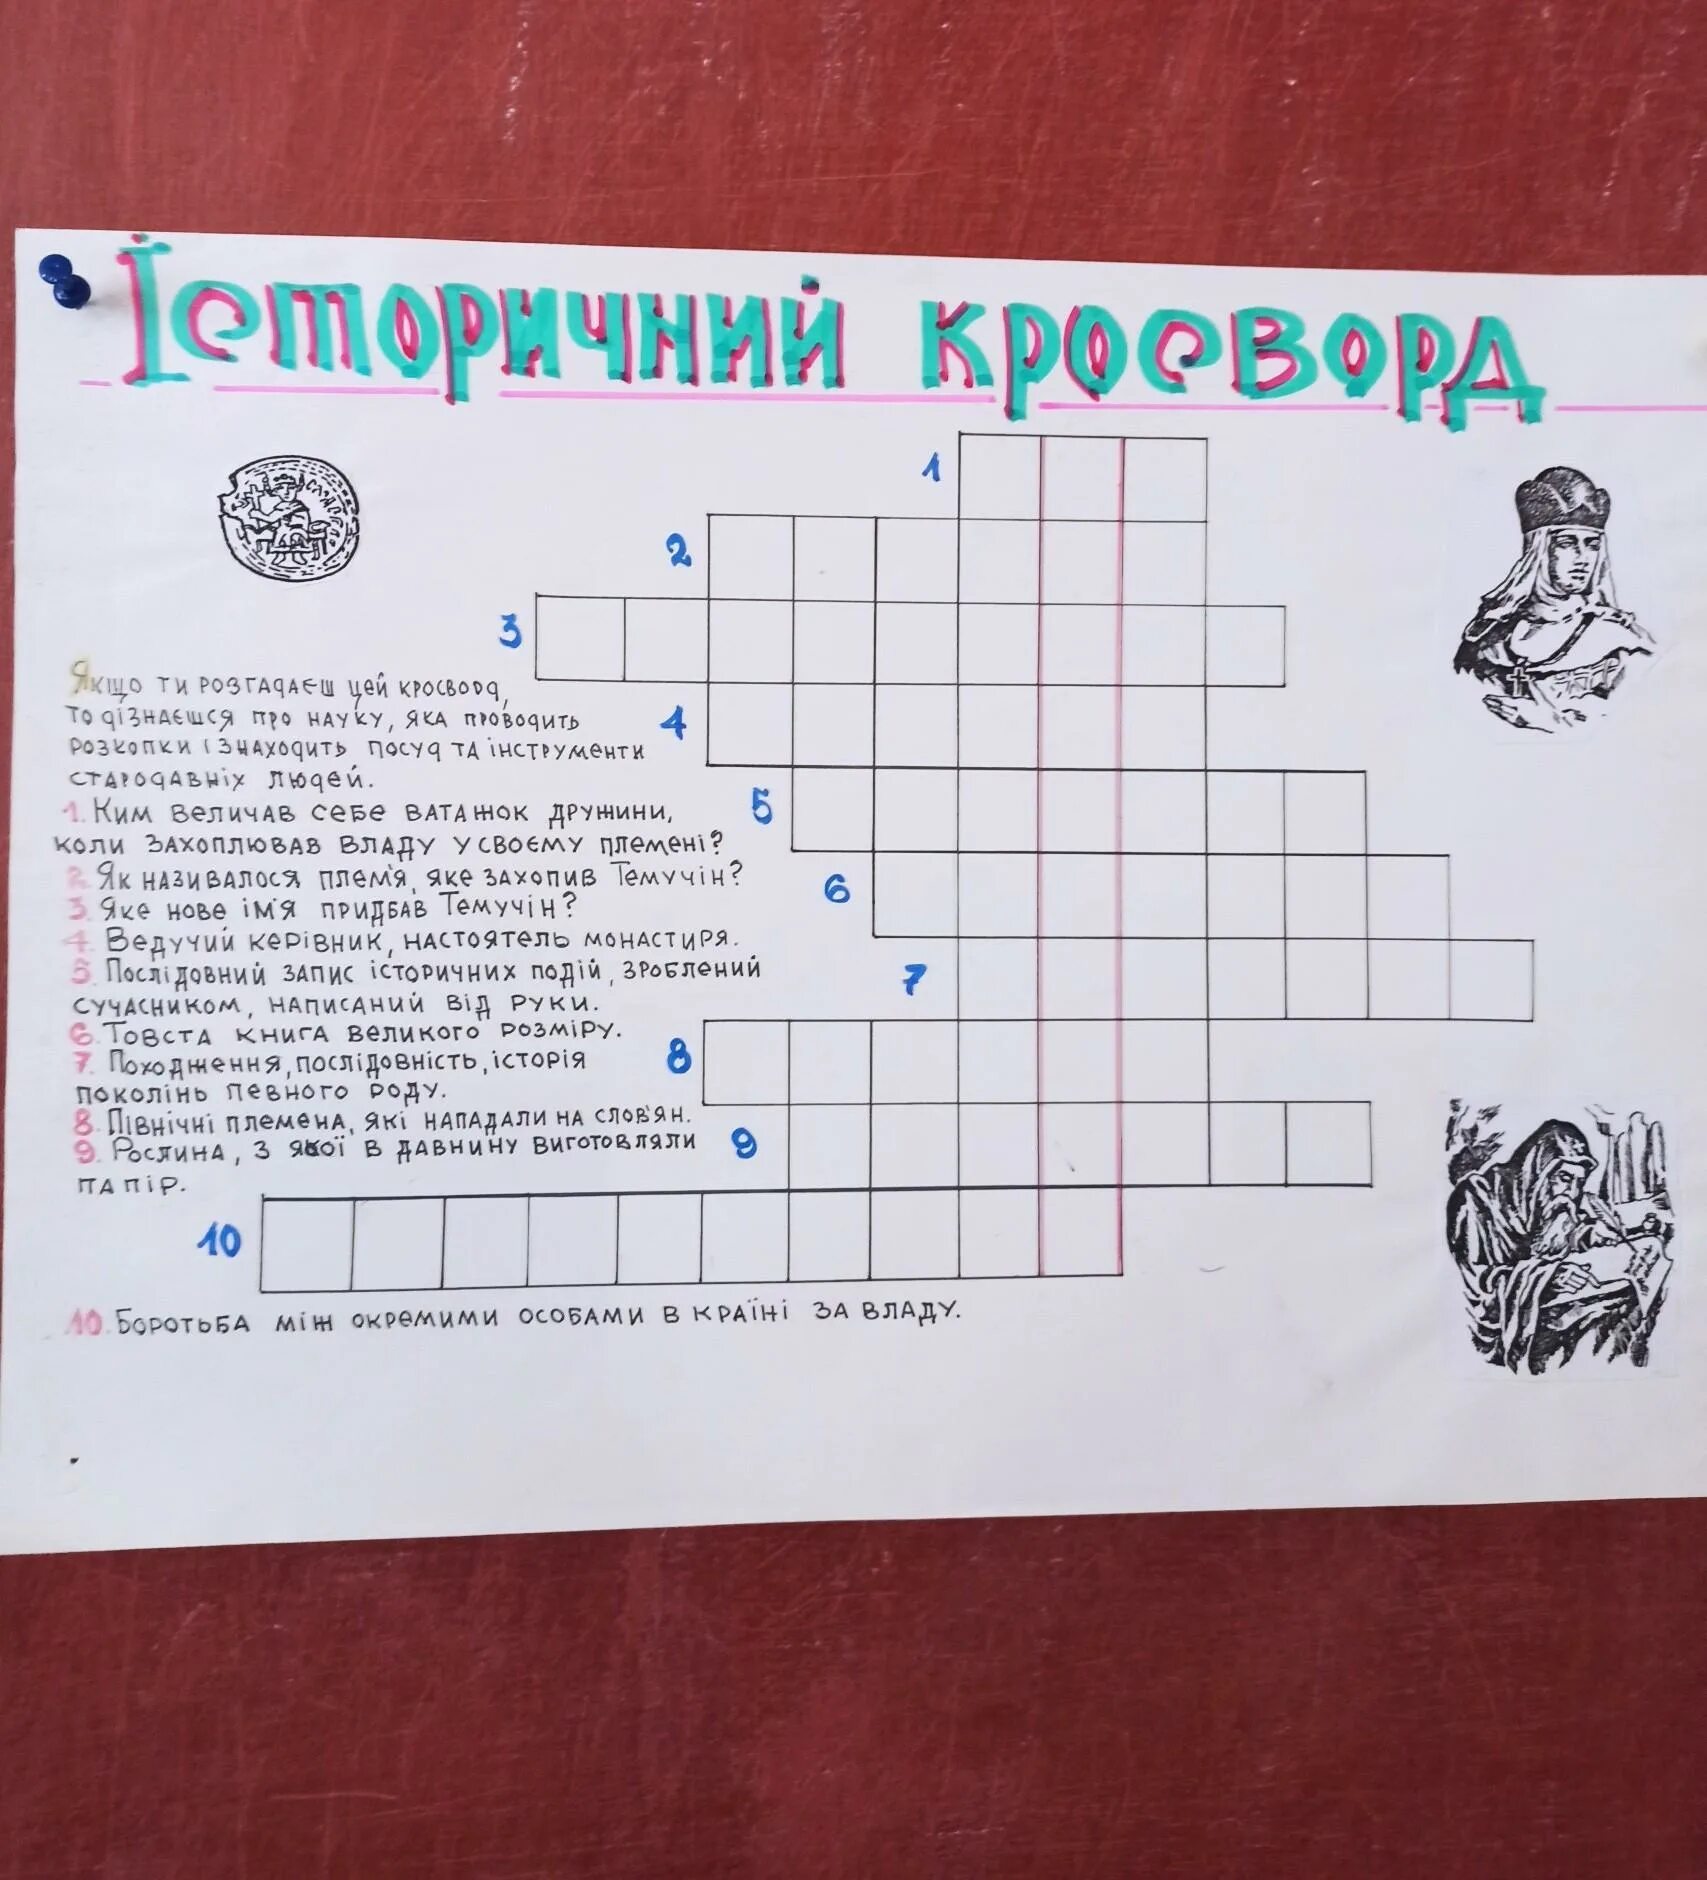 Історичний кросворд
1
2
3
Якщо ти розгадаєш цей кросворд,
то дізнаєшся про науку, яка проводить
розкопки і знаходить посуд та інструменти
стародавніх людей.
4
1. Ким величав себе ватажок дружини,
коли захоплював владу у своєму племені?
5
2. Як називалося плем'я, яке захопив Темучін?
3. Яке нове ім'я придбав Темучін?
6
4. Ведучий керівник, настоятель монастиря.
5. Послідовний запис історичних подій, зроблений
сучасником, написаний від руки.
7
6. Товста книга великого розміру.
7. Походження, послідовність, історія
поколінь певного роду.
8
8. Північні племена, які нападали на слов'ян.
9. Рослина, з якої в давнину виготовляли
папір.
9
10
10. Боротьба між окремими особами в країні за владу.